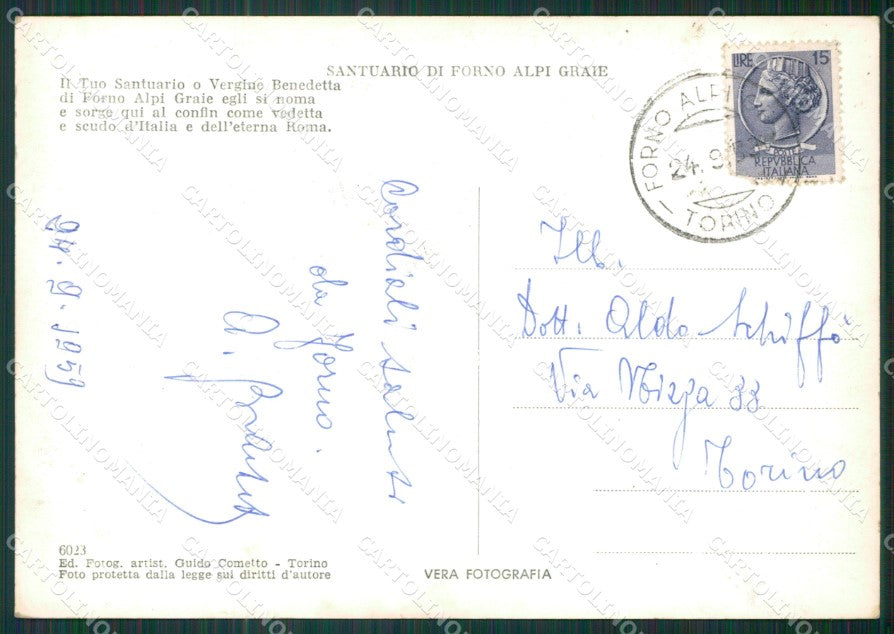 SANTUARIO DI FORNO ALPI GRAIE
Il Tuo Santuario o Vergine Benedetta
di Forno Alpi Graie egli si noma
e sorge qui al confin come vedetta
e scudo d'Italia e dell'eterna Roma.
LIRE 15
POSTE
REPVBBLICA
ITALIANA
FORNO ALPI
24. 9.
TORINO
24. 9. 1959
Cordiali saluti
da Forno.
A.
Ill.
Dott. Aldo Schiffò
Via Nizza 33
Torino
6023
Ed. Fotog. artist. Guido Cometto - Torino
Foto protetta dalla legge sui diritti d'autore
VERA FOTOGRAFIA
CARTOLINOMANIA